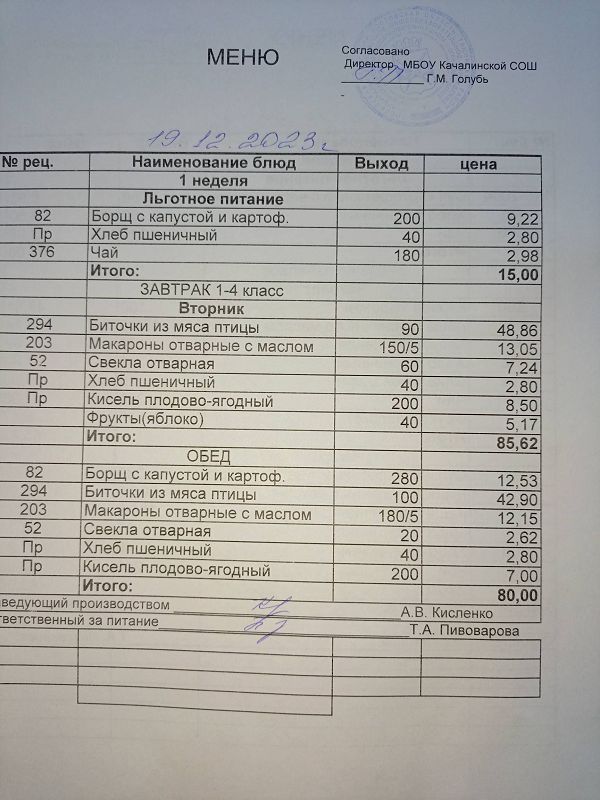 МЕНЮ
Согласовано
Директор МБОУ Качалинской СОШ
Г.М. Голубь
19.12.2023г
№ рец. Наименование блюд Выход цена
1 неделя
Льготное питание
82 Борщ с капустой и картоф. 200 9,22
Пр Хлеб пшеничный 40 2,80
376 Чай 180 2,98
Итого: 15,00
ЗАВТРАК 1-4 класс
Вторник
294 Биточки из мяса птицы 90 48,86
203 Макароны отварные с маслом 150/5 13,05
52 Свекла отварная 60 7,24
Пр Хлеб пшеничный 40 2,80
Пр Кисель плодово-ягодный 200 8,50
Фрукты(яблоко) 40 5,17
Итого: 85,62
ОБЕД
82 Борщ с капустой и картоф. 280 12,53
294 Биточки из мяса птицы 100 42,90
203 Макароны отварные с маслом 180/5 12,15
52 Свекла отварная 20 2,62
Пр Хлеб пшеничный 40 2,80
Пр Кисель плодово-ягодный 200 7,00
Итого: 80,00
аведующий производством А.В. Кисленко
тветственный за питание Т.А. Пивоварова